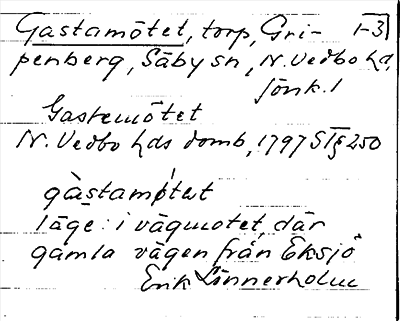 Gastamötet, torp, Gri- 1-3
penberg, Säby sn, N. Vedbo hd,
Jönk. l
Gastemötet
N. Vedbo hds domb, 1797 ST § 250
gàstamǿtet
läge: i vägmötet, där
gamla vägen från Eksjö
Erik Linnerholm